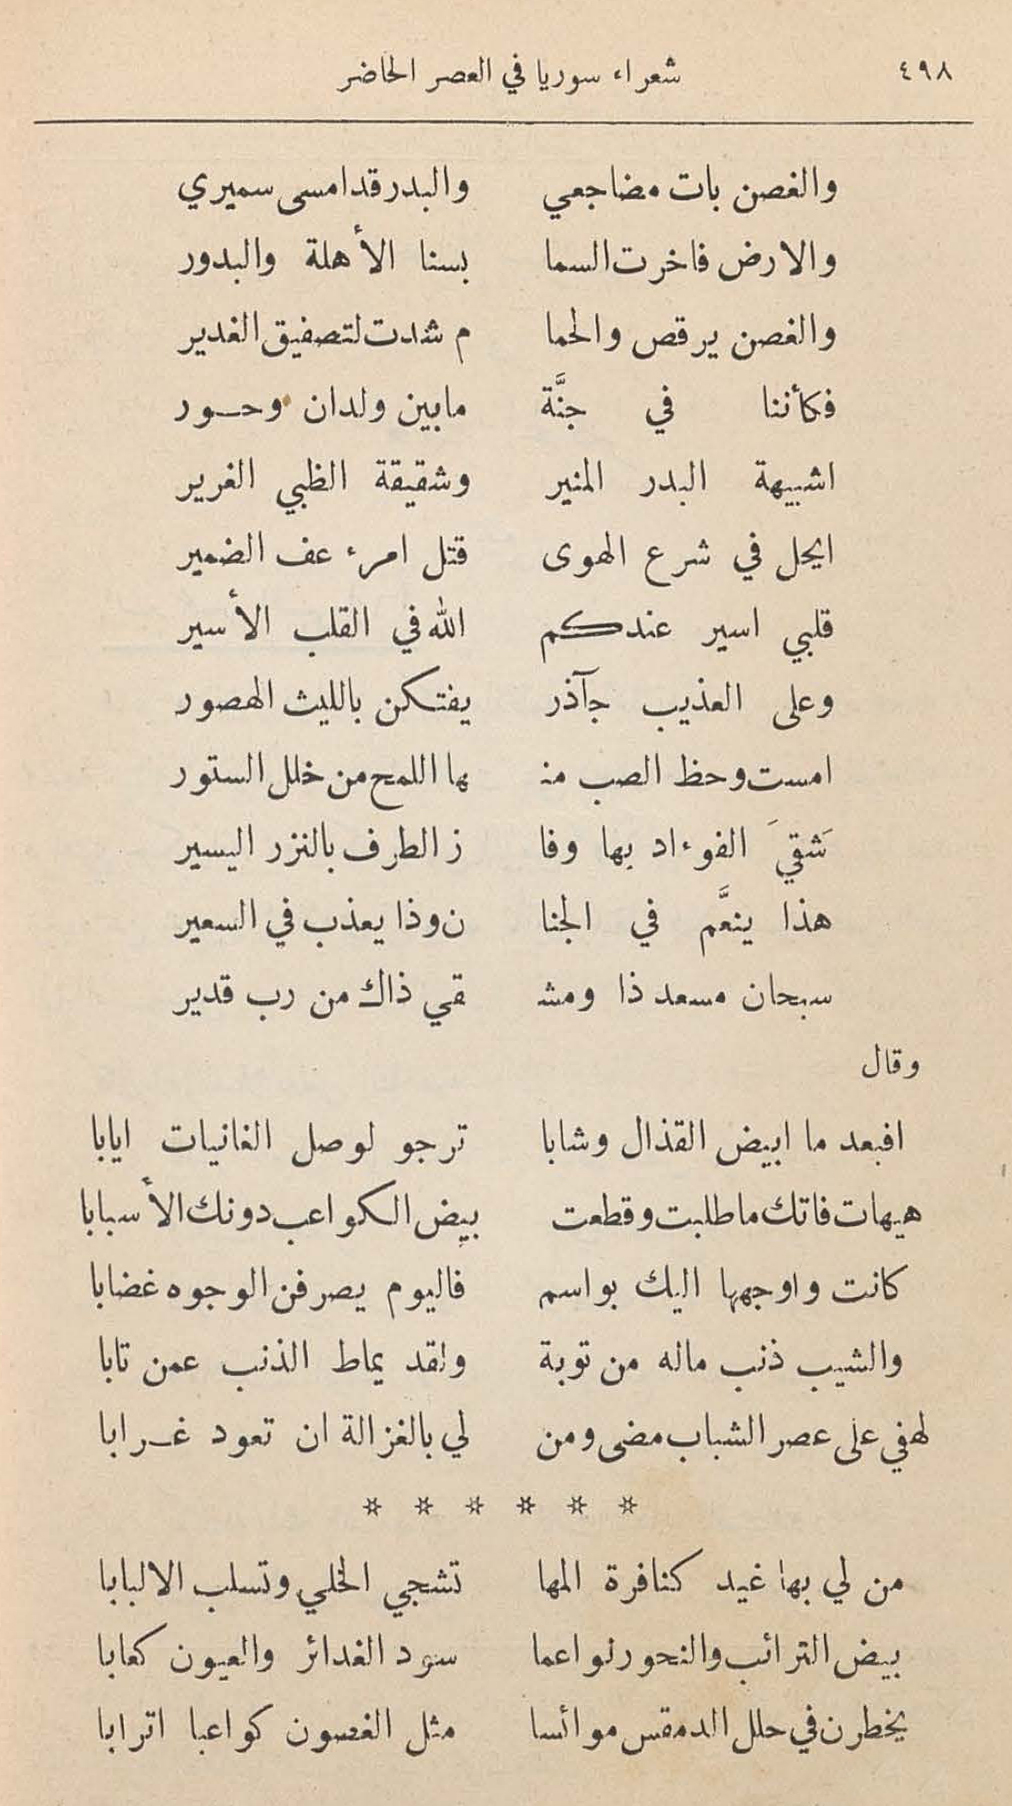 ٤٩٨ شعراء سوريا في العصر الحاضر
والغصن بات مضاجعي والبدر قد امسى سميري
والارض فاخرت السما بسنا الأهلة والبدور
والغصن يرقص والحما م شدت لتصفيق الغدير
فكأننا في جنَّة مابين ولدان وحــور
اشبيهة البدر المنير وشقيقة الظبي الغرير
ايحل في شرع الهوى قتل امرء عف الضمير
قلبي اسير عندكم الله في القلب الأسير
وعلى العذيب جآذر يفتكن بالليث الهصور
امست وحظ الصب منـ ـها اللمح من خلل الستور
شَقيَ الفوءاد بها وفا ز الطرف بالنزر اليسير
هذا ينعَّم في الجنا ن وذا يعذب في السعير
سبحان مسعد ذا ومشـ ـقي ذاك من رب قدير
وقال
افبعد ما ابيض القذال وشابا ترجو لوصل الغانيات ايابا
هيهات فاتك ما طلبت وقطعت بيض الكواعب دونك الأسبابا
كانت واوجهها اليك بواسم فاليوم يصرفن الوجوه غضابا
والشيب ذنب ماله من توبة ولقد يماط الذنب عمن تابا
لهفي على عصر الشباب مضى ومن لي بالغزالة ان تعود غــرابا
* * * * * *
من لي بها غيد كنافرة المها تشجي الخلي وتسلب الالبابا
بيض الترائب والنحور نواعما سود الغدائر والعيون كعابا
يخطرن في حلل الدمقس موائسا مثل الغصون كواعبا اترابا